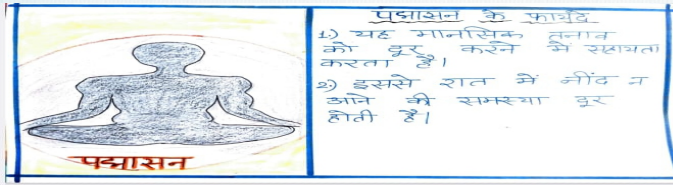 पद्मासन
पद्मासन के फायदे
1.) यह मानसिक तनाव
को दूर करने में सहायता
करता है।
2.) इससे रात में नींद न
आने की समस्या दूर
होती है।